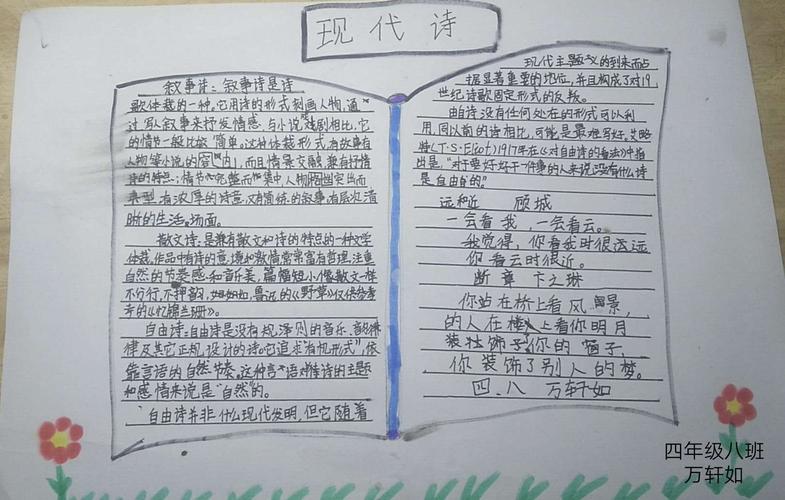 现代诗
叙事诗：叙事诗是诗
歌体裁的一种。它用诗的形式刻画人物，通
过写人叙事来抒发情感，与小说戏剧相比，它
的情节一般比较简单。这种体裁形式有故事有
人物像小说的容内，而且情景交融，兼有抒情
诗的特点；情节完整而集中，人物性格突出而
典型，有浓厚的诗意，又有简练的叙事，有层次清
晰的生活。场面。
散文诗：是兼有散文和诗的特点的一种文学
体裁，作品中有诗的意境和激情常常富有哲理，注重
自然的节奏感和音乐美，篇幅短小像散文一样
不分行，不押韵，如鲁迅的《野草》
《忆锦兰珊》。
自由诗：自由诗是没有规泽则的音乐、音韵
律及其它正规，设计的诗。它追求"有机形式"，依
靠言语的自然节奏。这种言语对诗的主题
和感情来说是"自然"的。
"自由诗并非什么现代发明，但它随着
现代主题义的到来而占
据显著重要的地位，并且构成了对19
世纪诗歌固定形式的反叛。
由诗没有任何处在的形式可以利
用，同以前的诗相比，可能是最难写好，艾略
特（T·S·Eliot）1917年在《对自由诗的看法》中指
出是，"对于要好好干一件事的人来说，没有什么诗
是自由自的。"
远和近 顾城
一会看我，一会看云。
我觉得，你看我时很遥远
你看云时很近。
断章 卞之琳
你站在桥上看风景，
的人在楼上看你明月
装壮饰子你的窗子，
你装饰了别人的梦。
四、八 万轩如
四年级八班
万轩如